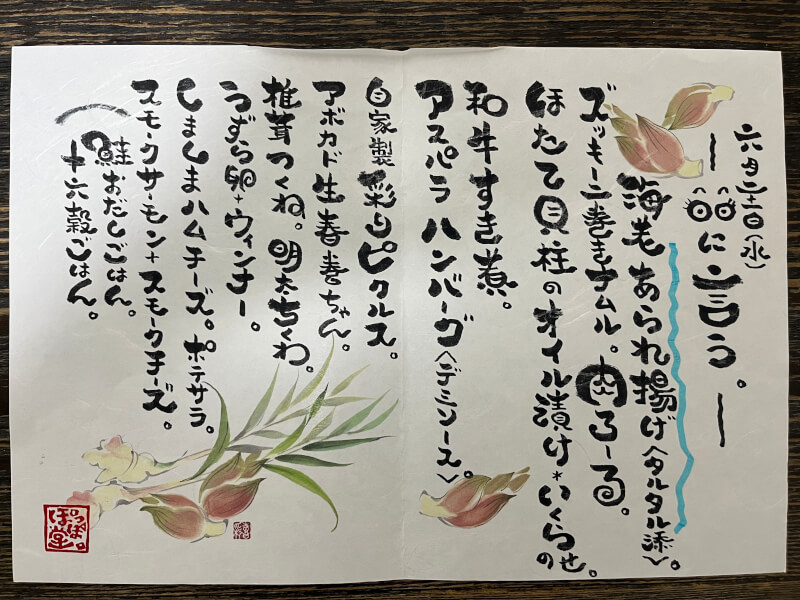 六月二十一日(水)
一品に言う。
海老あられ揚げ〈タルタル添〉。
ズッキーニ巻きナムル。肉ろーる。
ほたて貝柱のオイル漬け*いくらのせ。
和牛すき煮。
アスパラハンバーグ〈デミソース〉。
自家製彩りピクルス。
アボカド生春巻ちゃん。
椎茸つくね。明太ちくわ。
うずら卵+ウィンナー。
しましまハムチーズ。ポテサラ。
スモークサーモン+スモークチーズ。
鮭おだしごはん。
十六穀ごはん。